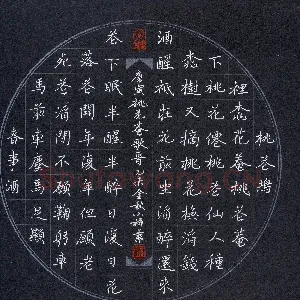 桃花塢
裡桃花菴桃花菴
下桃花僊桃花仙人種
桃樹又摘桃花換酒錢
酒醒祗在花前坐酒醉還來
唐寅桃花菴歌
花下眠半醒半醉日復日花
落花開年復年但願老
死花酒間不願鞠躬車
馬前車塵馬足顯
事酒